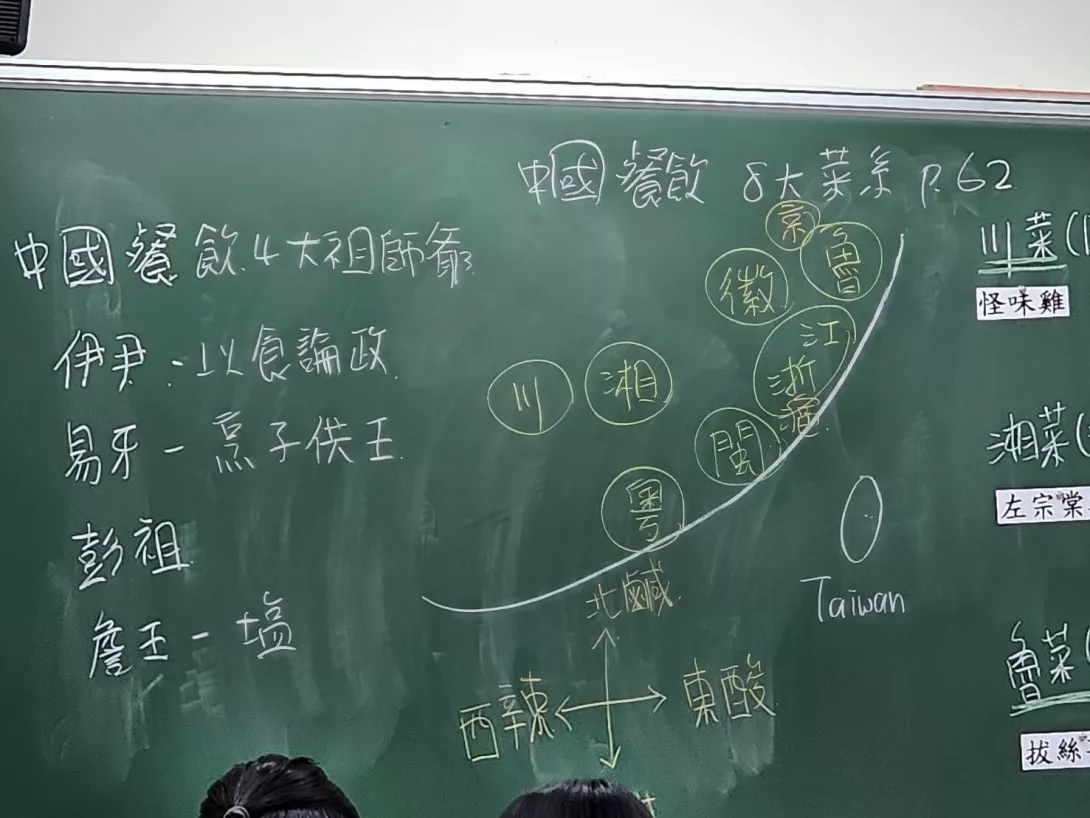 中國餐飲 8大菜系 P.62
中國餐飲4大祖師爺
伊尹-以食論政
易牙-烹子供王
彭祖
詹王-塩
京
魯
徽
江
浙
滬
川
湘
閩
粵
Taiwan
北鹹
西辣
東酸
川菜(
怪味雞
湘菜(
左宗棠
魯菜(
拔絲